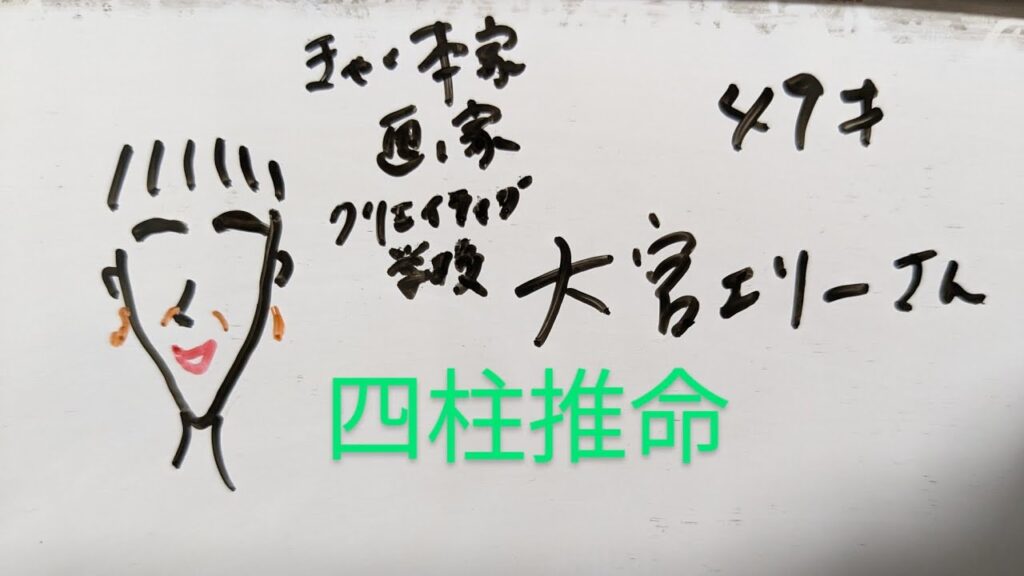 きゃく本家
画家
クリエイティブ
学校
49才
大宮エリーさん
四柱推命